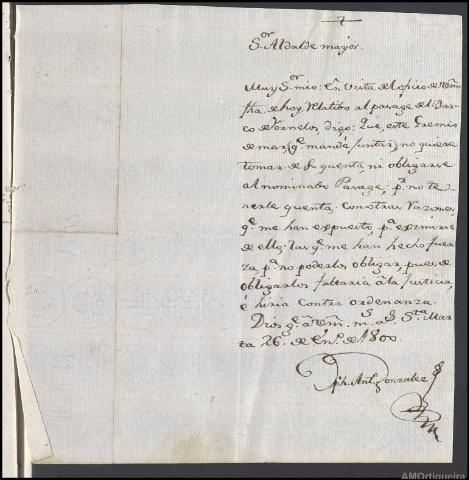 Sor. Alcalde mayor.
Muy Sor. mio: En vista del oficio de Vm.
fha. de hoy, relatibo al parage del Bar-
co de Fornelos, digo: Que, este Gremio
de mar (qe. mandé juntar) no quiere
tomar de su quenta, ni obligarse
al nominado Parage, pa. no te-
nerle quenta, con otras razones,
qe. me han expuesto, pa. eximirse
de ello; las qe. me han hecho fuer-
za, pa. no poderlos obligar, pues de
obligarlos faltaria a la Justicia,
é hiria contra ordenanza.
Dios ge. a Vm. ms. as. Sta. Mar-
ta 26. de Eno. de 1800.
Anto. Gonzalez
AMOrtigueira